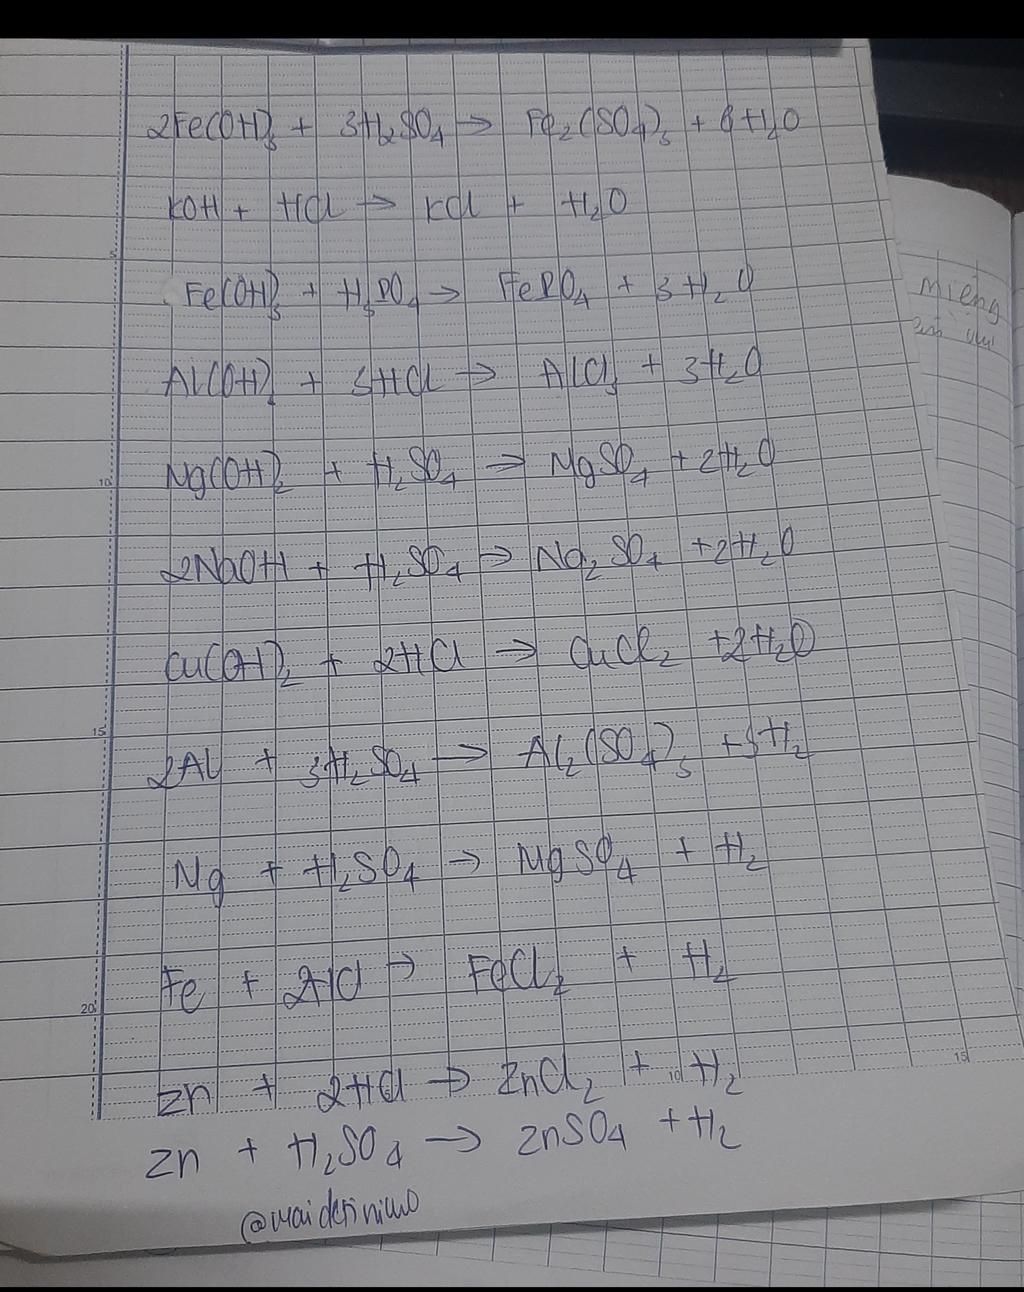 2Fe(OH)₃ + 3H₂SO₄ → Fe₂(SO₄)₃ + 6H₂O
KOH + HCl → KCl + H₂O
Fe(OH)₃ + H₃PO₄ → FePO₄ + 3H₂O
Al(OH)₃ + 3HCl → AlCl₃ + 3H₂O
Mg(OH)₂ + H₂SO₄ → MgSO₄ + 2H₂O
2NaOH + H₂SO₄ → Na₂SO₄ + 2H₂O
Cu(OH)₂ + 2HCl → CuCl₂ + 2H₂O
2Al + 3H₂SO₄ → Al₂(SO₄)₃ + 3H₂
Mg + H₂SO₄ → MgSO₄ + H₂
Fe + 2HCl → FeCl₂ + H₂
Zn + 2HCl → ZnCl₂ + H₂
Zn + H₂SO₄ → ZnSO₄ + H₂
5
10
15
20
10
15
miếng